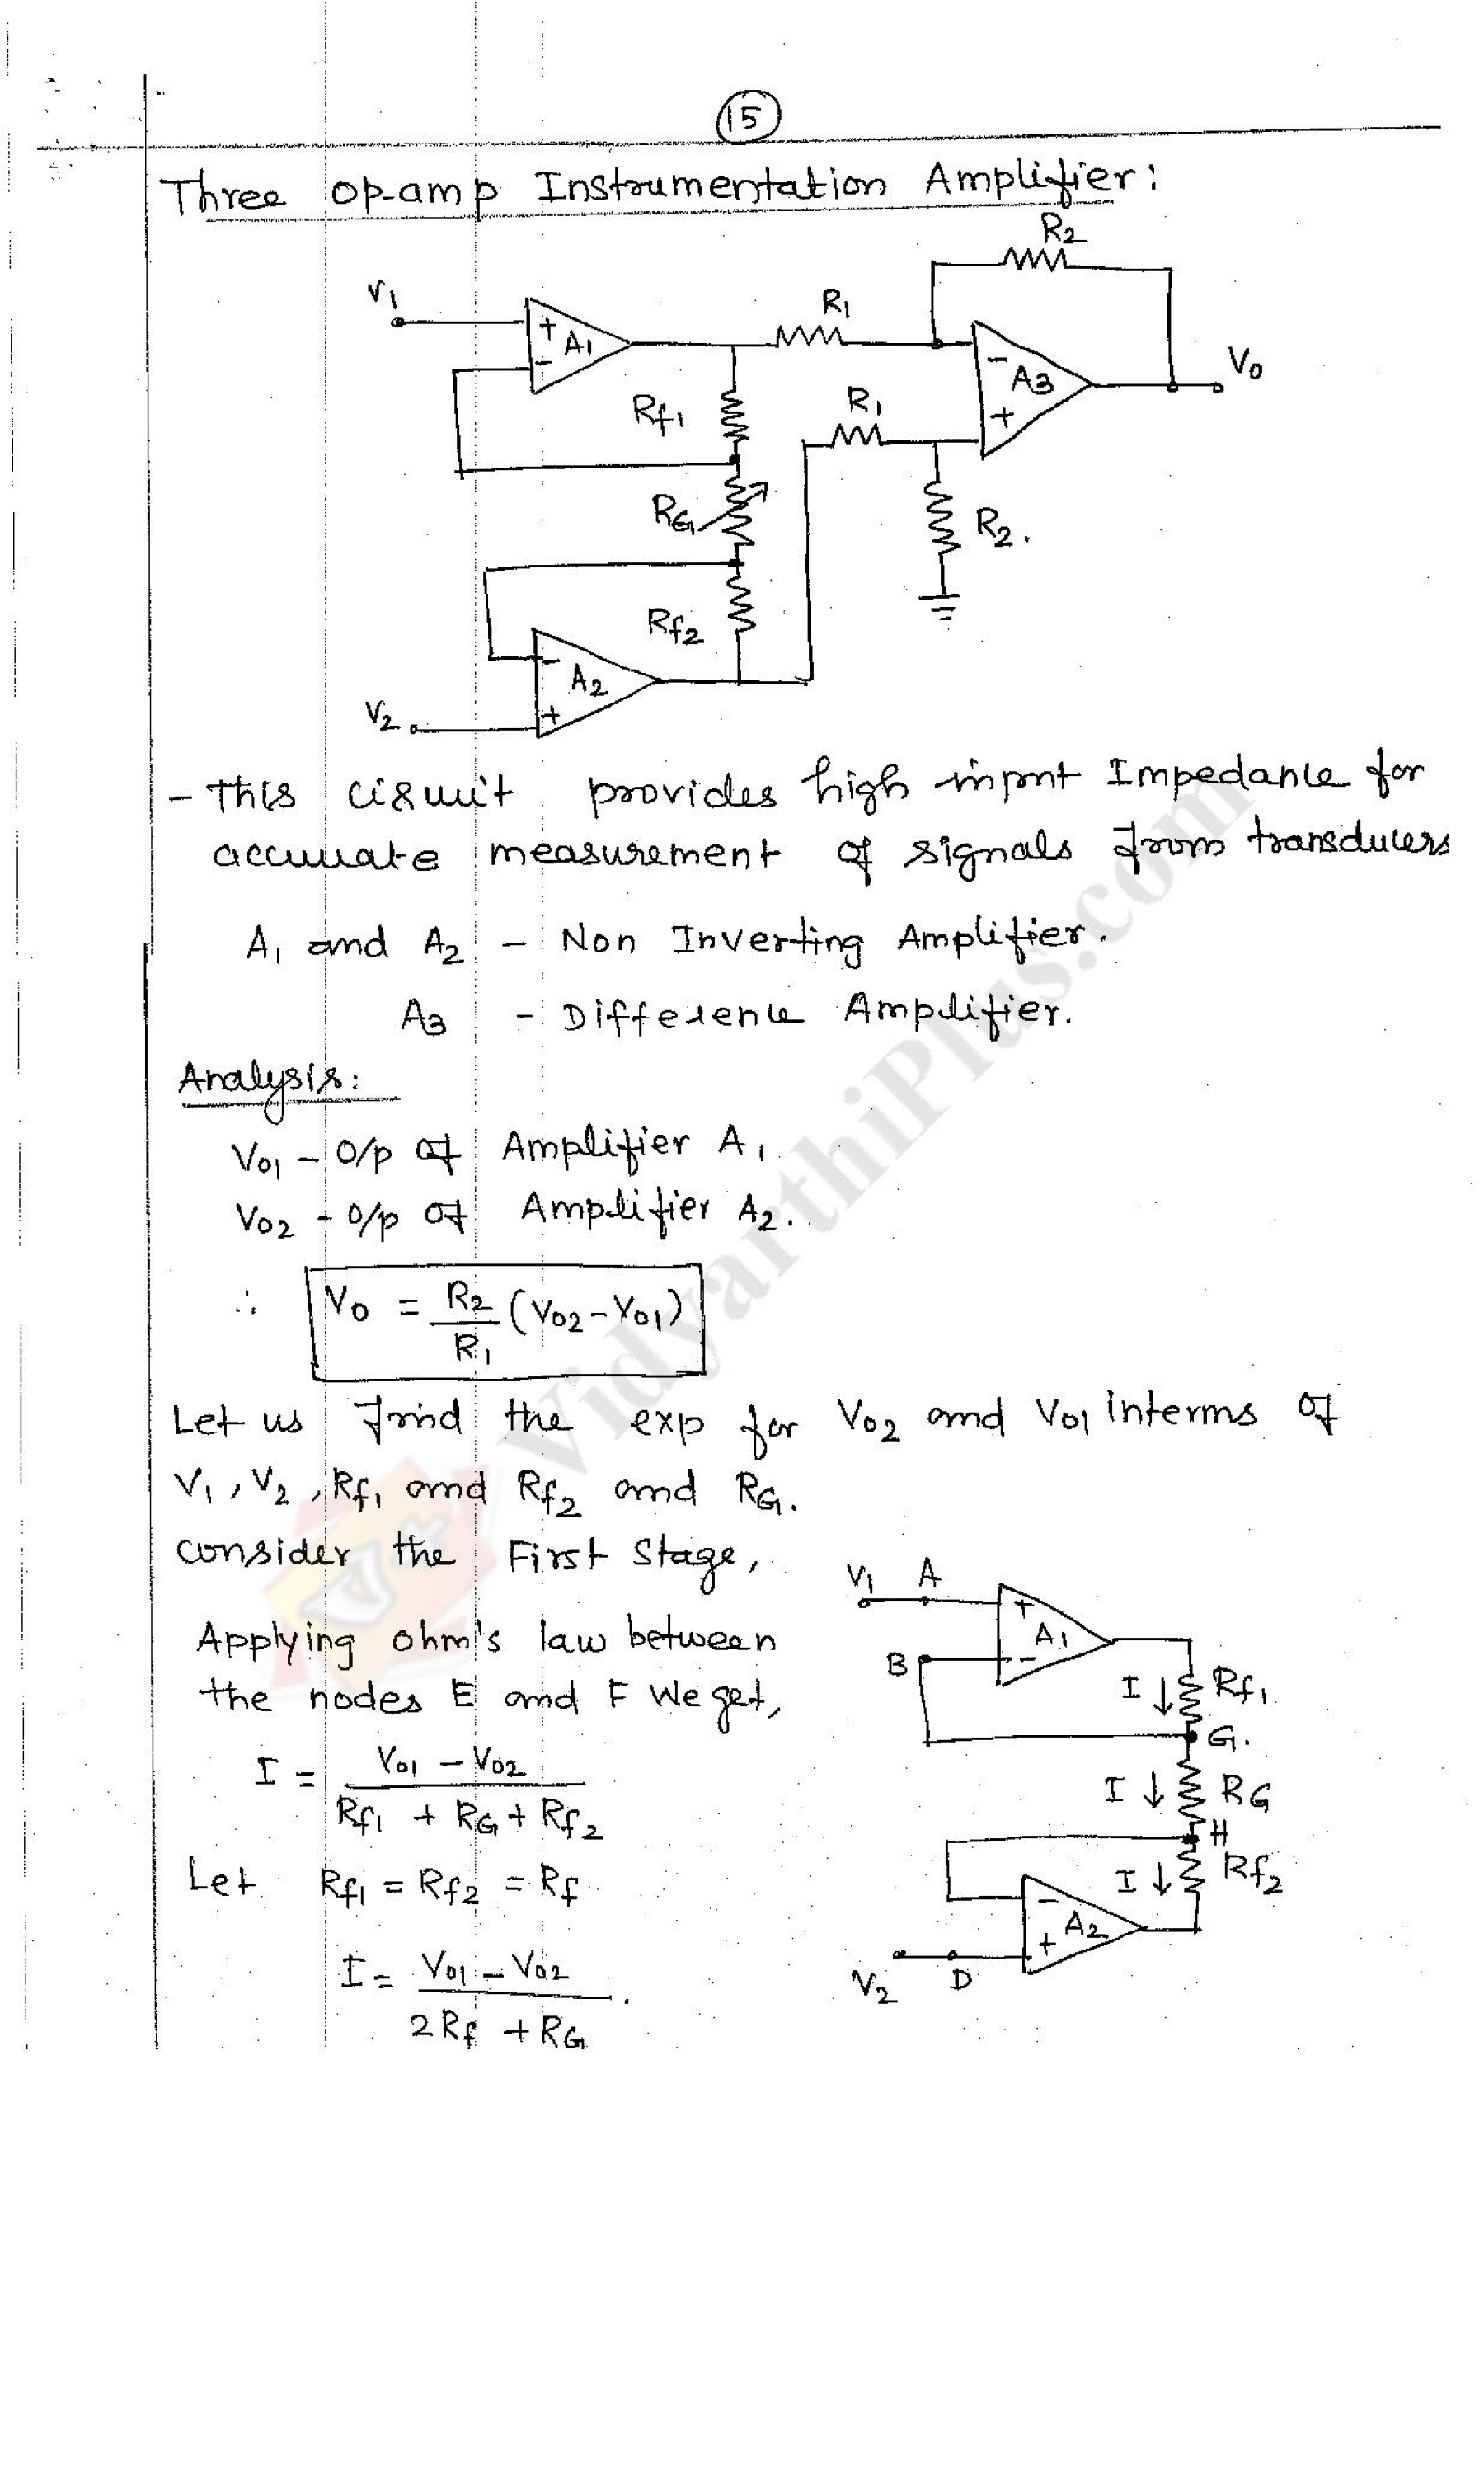 15
Three op-amp Instrumentation Amplifier:
R2
V1
+
A1
-
R1
-
A3
+
V0
Rf1
R1
RG
R2.
Rf2
-
A2
+
V2
- This circuit provides high input Impedance for
accurate measurement of signals from transducers
A1 and A2 - Non Inverting Amplifier.
A3 - Difference Amplifier.
Analysis:
V01 - O/p of Amplifier A1
V02 - O/p of Amplifier A2.
∴ V0 = R2/R1 (V02 - V01)
Let us find the exp for V02 and V01 interms of
V1, V2, Rf1 and Rf2 and RG.
consider the First Stage,
Applying ohm's law between
the nodes E and F We get,
I = (V01 - V02) / (Rf1 + RG + Rf2)
Let Rf1 = Rf2 = Rf
I = (V01 - V02) / (2Rf + RG).
V1 A
+
A1
-
B
I ↓ Rf1
G.
I ↓ RG
H
I ↓ Rf2
-
A2
+
V2 D
VidyarthiPlus.com